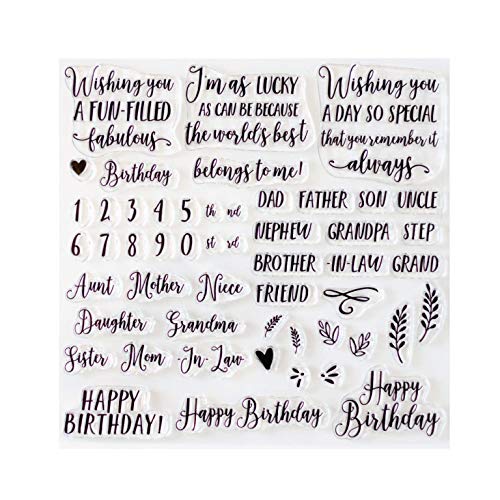 Wishing you
A FUN-FILLED
fabulous
Birthday
I'm as LUCKY
AS CAN BE BECAUSE
the world's best
belongs to me!
Wishing you
A DAY SO SPECIAL
that you remember it
always
1 2 3 4 5 th nd
6 7 8 9 0 st rd
DAD FATHER SON UNCLE
NEPHEW GRANDPA STEP
BROTHER -IN-LAW GRAND
FRIEND
Aunt Mother Niece
Daughter Grandma
Sister Mom -In-Law
HAPPY
BIRTHDAY!
Happy Birthday
Happy
Birthday